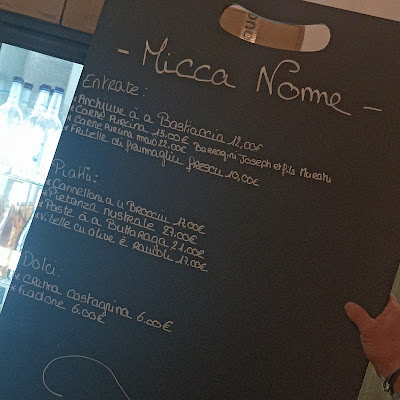 - Micca Nome -
Entrate:
* Anchjuve à a Bastiaccia 12,00€
* Carne Purcina 15,00€ Barragini Joseph et fils Mureatu
* Carne Purcina maiò 22,00€
* Fritelle di furmagliu frescu 10,00€
Piatti:
* Cannelloni a u Brocciu 17.00€
* Pietanza nustrale 27.00€
* Paste à a Buttaraga 21.00€
* Vitellu cu olive è raviolli 17.00€
Dolci:
* Crema castagnina 6.00€
* Fiadone 6.00€